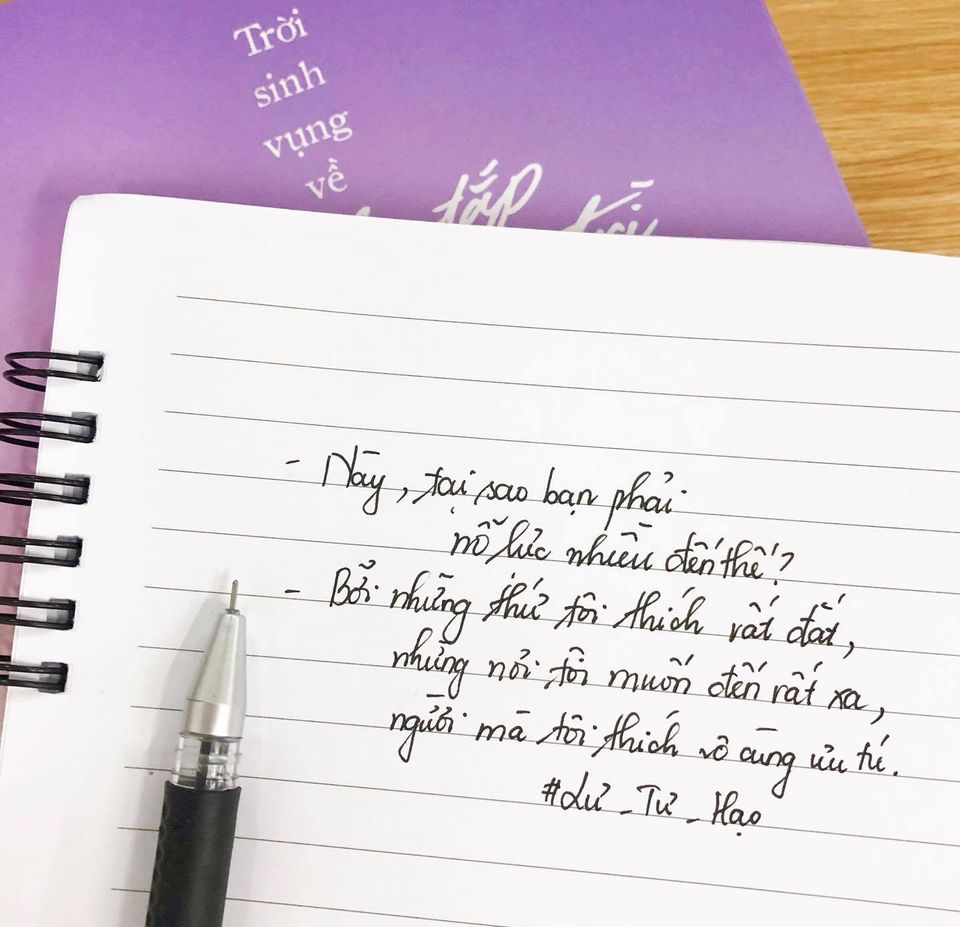 Trời
sinh
vụng
về
tấp
- Này, tại sao bạn phải
nỗ lực nhiều đến thế?
- Bởi những thứ tôi thích rất đắt,
những nơi tôi muốn đến rất xa,
người mà tôi thích vô cùng ưu tú.
#Lư_Tư_Hạo